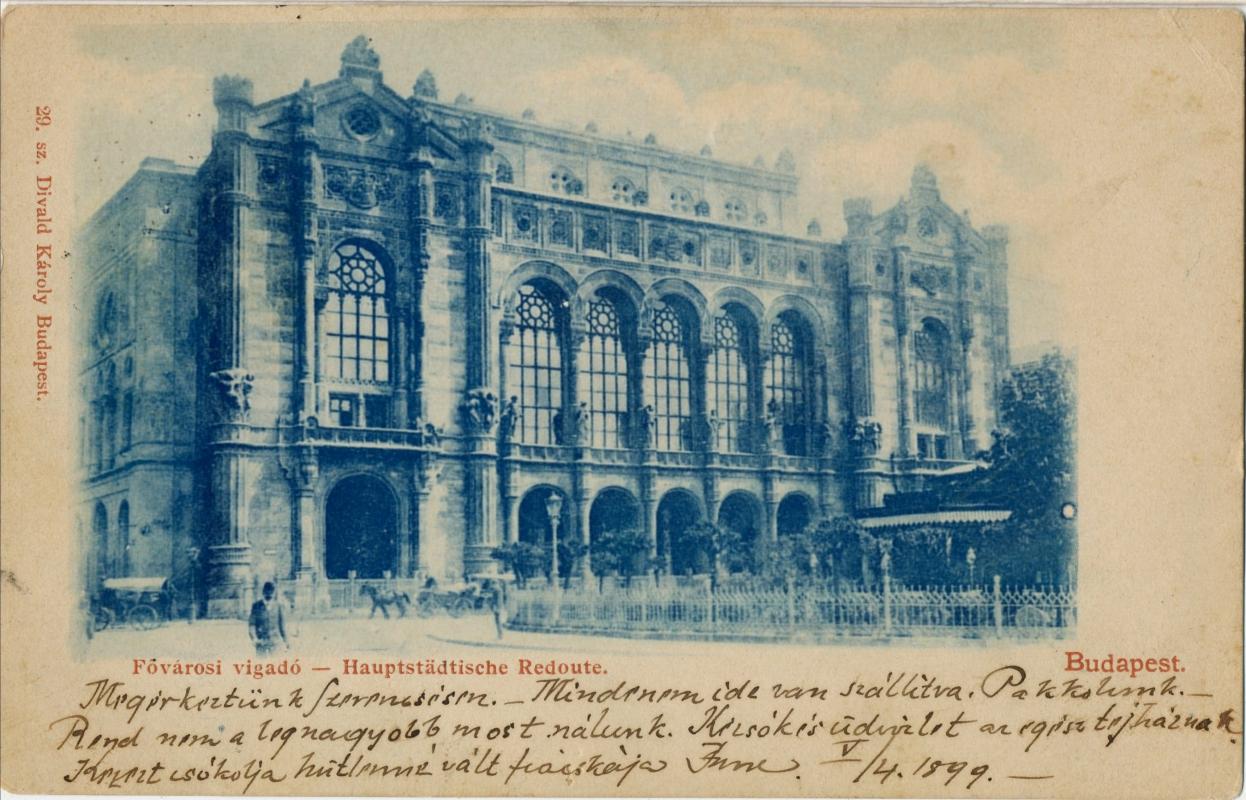 29. sz. Divald Károly Budapest.
Fővárosi vigadó — Hauptstädtische Redoute.
Budapest.
Megérkeztünk szerencsésen. — Mindenem ide van szállitva. Pakkolunk. —
Rend nem a legnagyobb most nálunk. Kézsók és üdvözlet az egész tejháznak.
Kezeit csókolja hűtlenné vált fiacskája V/4. 1899. —